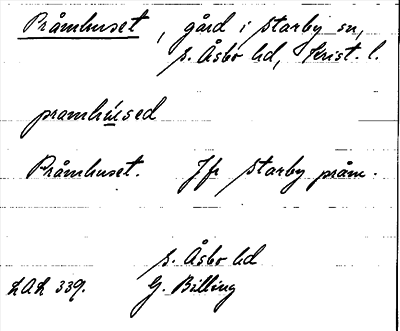 Pråmhuset, gård i Starby sn,
S. Åsbo hd, Krist. l.
pramhúsed
Pråmhuset. Jfr Starby pråm.
S. Åsbo hd
LAL 339. G. Billing